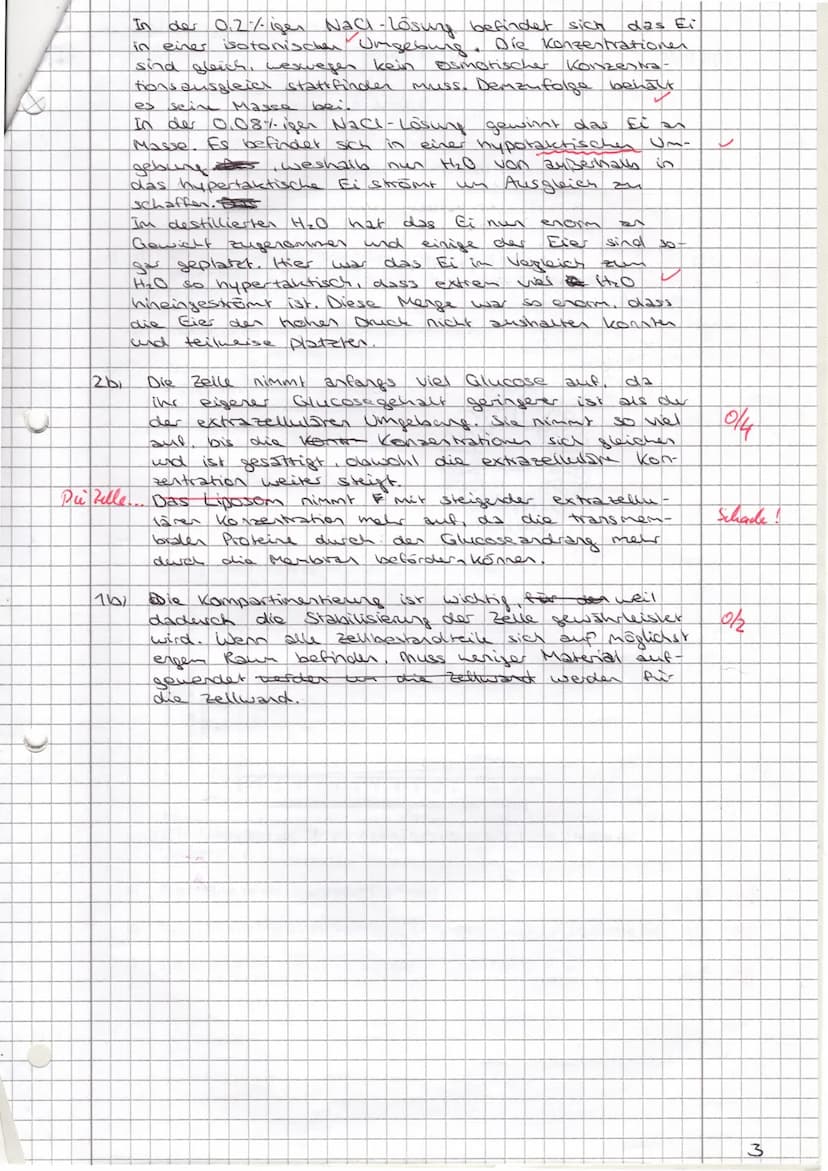 In der 0,2%igen NaCl-Lösung befindet sich das Ei
in einer isotonischen Umgebung. Die Konzentrationen
sind gleich, weswegen kein osmotischer Konzentra-
tionsausgleich stattfinden muss. Demzufolge behält
es seine Masse bei.
In der 0,08%igen NaCl-Lösung gewinnt das Ei an
Masse. Es befindet sich in einer hypotaktischen Um-
gebung, weshalb nun H2O von außerhalb in
das hypertaktische Ei strömt um Ausgleich zu
schaffen.
Im destillierten H2O hat das Ei nun enorm an
Gewicht zugenommen und einige der Eier sind so-
gar geplatzt. Hier war das Ei im Vergleich zum
H2O so hypertaktisch, dass extrem viel H2O
hineingeströmt ist. Diese Menge war so enorm, dass
die Eier den hohen Druck nicht aushalten konnten
und teilweise platzten.
2b) Die Zelle nimmt anfangs viel Glucose auf, da
ihr eigener Glucosegehalt geringerer ist als der
der extrazellulären Umgebung. Sie nimmt so viel
0/4
auf, bis die Konzentrationen sich gleichen
und ist gesättigt, obwohl die extrazelluläre Kon-
zentration weiter steigt.
Die Zelle... Das Liposom nimmt mit steigender extrazellu-
lären Konzentration mehr auf, da die transmem-
Schade!
branen Proteine durch den Glucoseandrang mehr
durch die Membran befördern können.
1b) Die Kompartimentierung ist wichtig, für den weil
dadurch die Stabilisierung der Zelle gewährleistet
0/2
wird. Wenn alle Zellbestandteile sich auf möglichst
engem Raum befinden, muss weniger Material auf-
gewendet werden um die Zellwand werden für
die Zellwand.
3